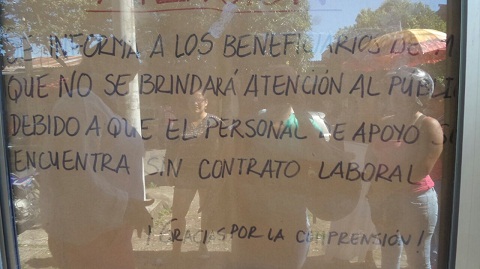 SE INFORMA A LOS BENEFICIARIOS DE
QUE NO SE BRINDARÁ ATENCIÓN AL PÚBLI
DEBIDO A QUE EL PERSONAL DE APOYO SE
ENCUENTRA SIN CONTRATO LABORAL
¡GRACIAS POR LA COMPRENSIÓN!